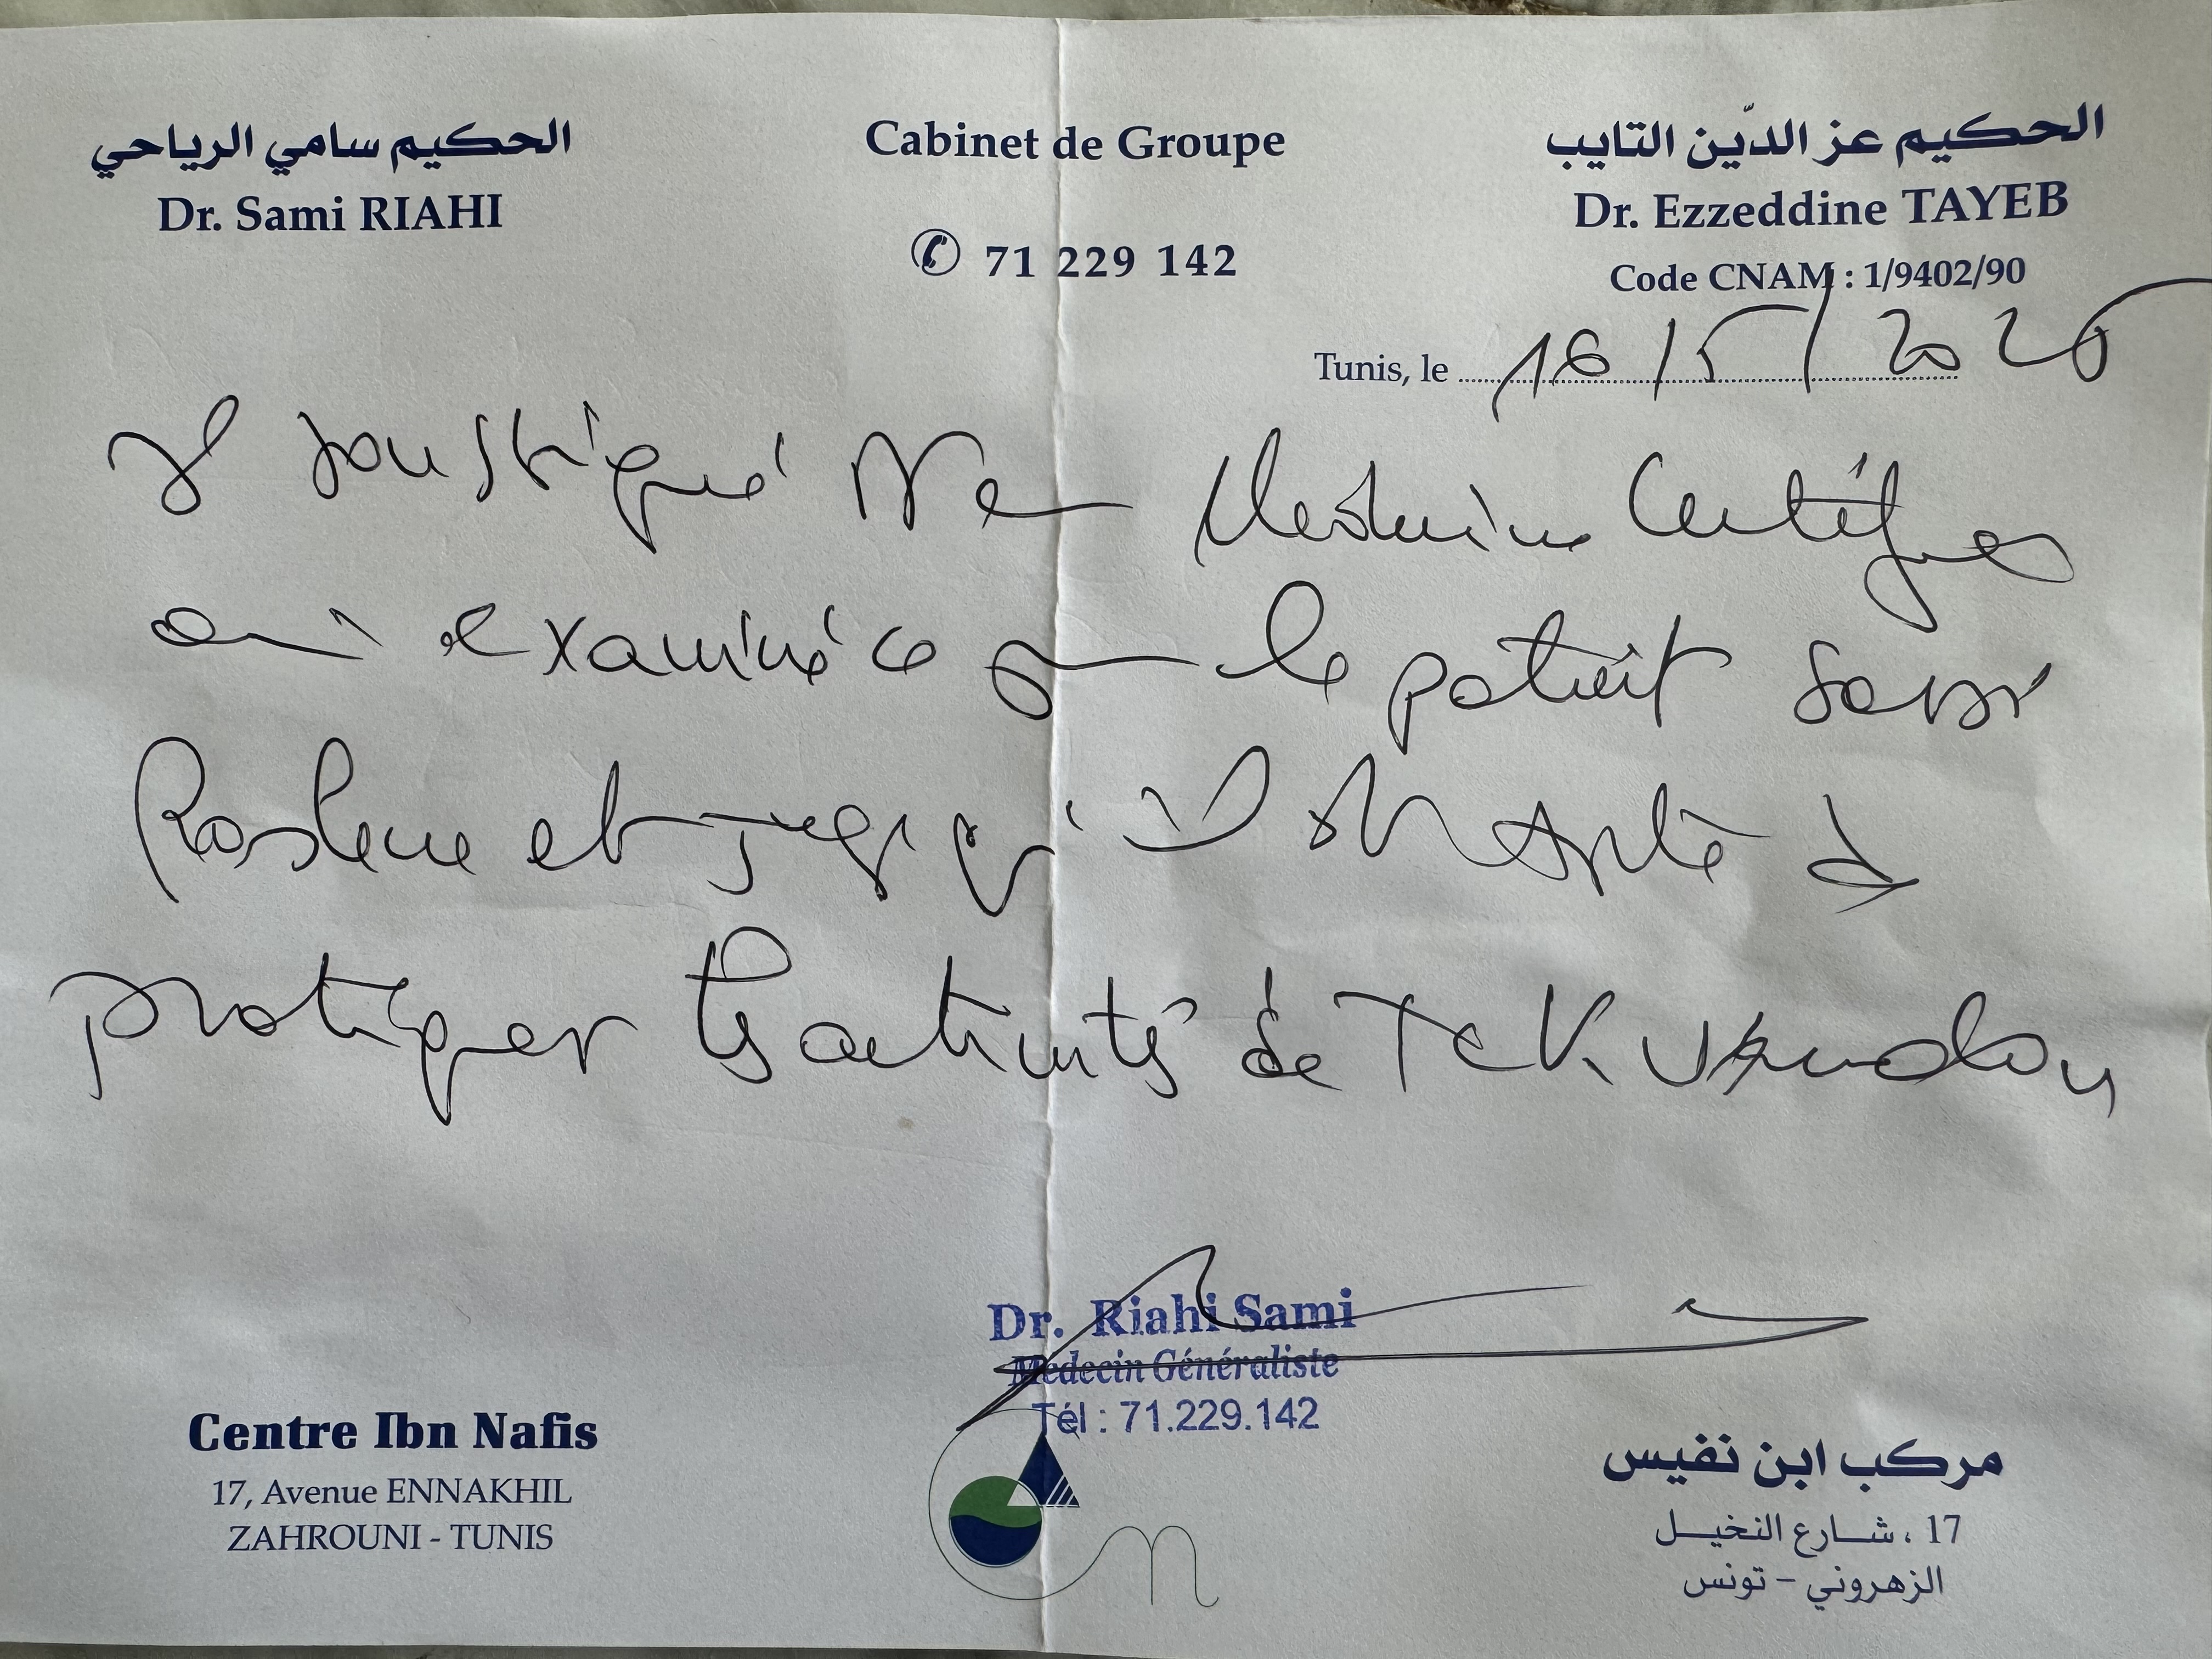 الحكيم سامي الرياحي
Dr. Sami RIAHI
Cabinet de Groupe
✆ 71 229 142
الحكيم عز الدّين التايب
Dr. Ezzeddine TAYEB
Code CNAM : 1/9402/90
Tunis, le 16/5/2026
Je soussigné Dr en Medecine Certifies
avoir examiné ce jour le patient
Raslene et juge qu'il est Apte à
pratiquer les activités de
Dr. Riahi Sami
Médecin Généraliste
Tél : 71.229.142
Centre Ibn Nafis
17, Avenue ENNAKHIL
ZAHROUNI - TUNIS
مركب ابن نفيس
17 ، شارع النخيل
الزهروني – تونس